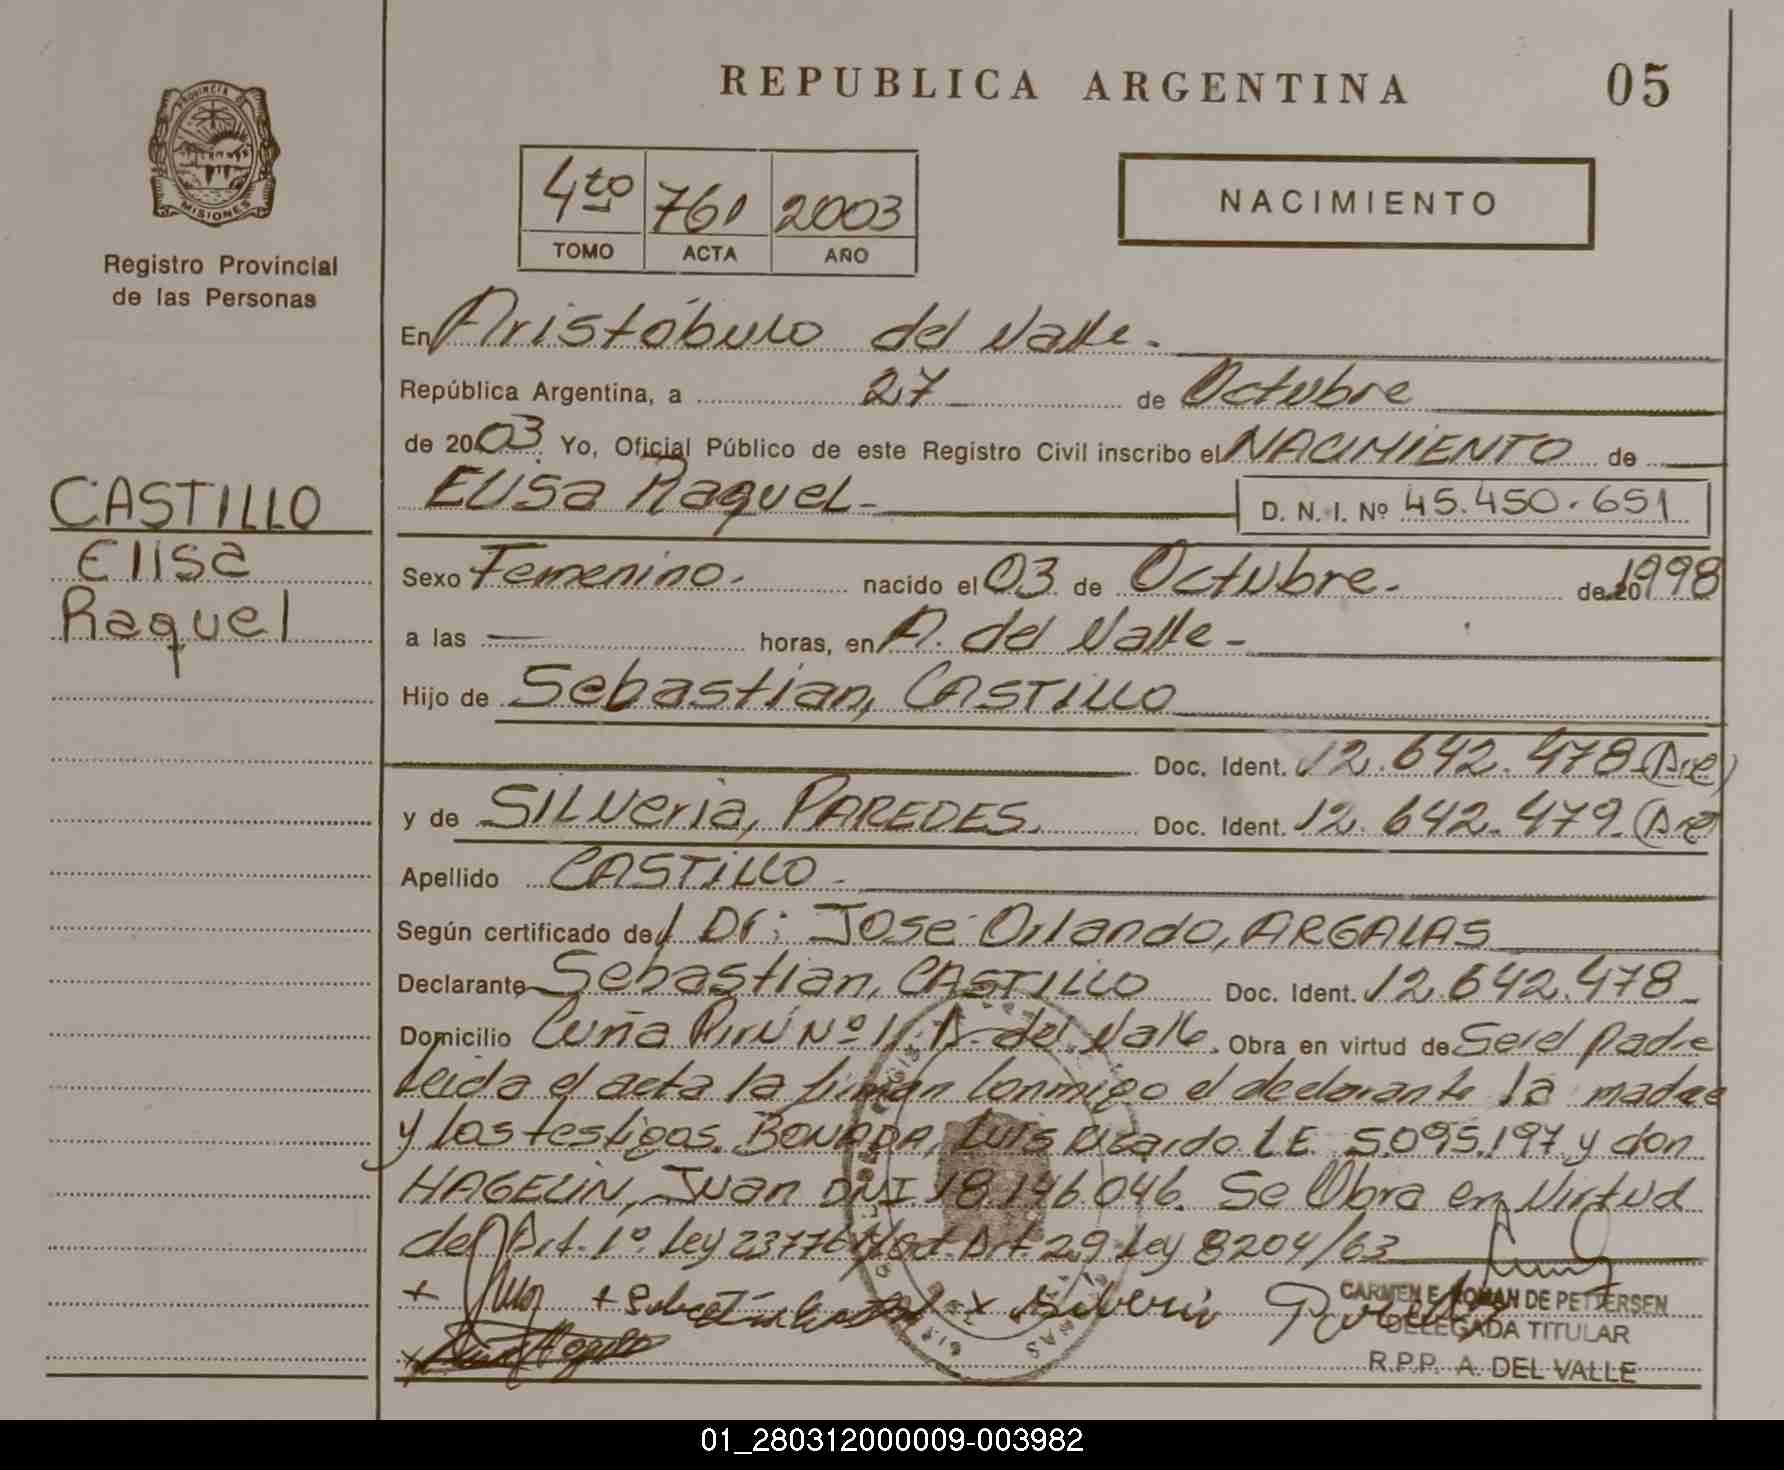 REPUBLICA ARGENTINA 05
PROVINCIA DE
MISIONES
Registro Provincial
de las Personas
4to 761 2003
TOMO ACTA AÑO
NACIMIENTO
CASTILLO
Elisa
Raquel
En Aristóbulo del Valle.
República Argentina, a 27 de Octubre
de 2003 Yo, Oficial Público de este Registro Civil inscribo el NACIMIENTO de
Elisa Raquel D. N. I. Nº 45.450.651
Sexo Femenino. nacido el 03 de Octubre. de 20 1998
a las — horas, en A. del Valle
Hijo de Sebastian, CASTILLO
Doc. Ident. 12.642.478
y de SILVeria, PAREDES. Doc. Ident. 12.642.479
Apellido CASTILLO
Según certificado del Dr: José Orlando, ARGALAS
Declarante Sebastian, CASTILLO Doc. Ident. 12.642.478
Domicilio Cuña Pirú Nº 1, A. del Valle. Obra en virtud de Ser el padre
Leida el acta la firman conmigo el declarante la madre
y los testigos. BOVADA, Luis Ricardo L.E. 5.095.197 y don
HAGELIN, Juan DNI 18.146.046. Se Obra en Virtud
del Art. 1º Ley 23776 Mod. Art. 29 Ley 8204/63
Silveria Paredes
CARMEN E. ROMAN DE PETTERSEN
DELEGADA TITULAR
R.P.P. A. DEL VALLE
01_280312000009-003982